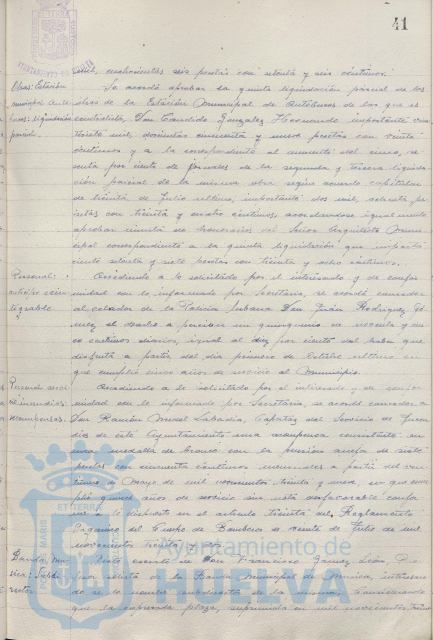 41
AYUNTAMIENTO DE HUELVA
mil, cuatrocientas seis pesetas con setenta y seis céntimos.
Obras: Estación
Se acordó aprobar la quinta liquidación parcial de las
municipal Auto
obras de la Estación Municipal de Autobuses de las que es
buses: liquidación
contratista, Don Candido Gonzalez importante
parcial.
treinta mil, doscientas cincuenta y nueve pesetas con veinte
céntimos y a la correspondiente al aumento del cinco,
centa por ciento de jornales de la segunda y tercera liquida-
ción parcial de la misma obra segun acuerdo capitular
de treinta de Julio último, importante dos mil, setenta pe-
setas con treinta y cuatro céntimos, acordandose igualmente
aprobar minuta de honorarios del Señor Arquitecto Muni-
cipal correspondiente a la quinta liquidación, que importa
ciento setenta y siete pesetas con treinta y ocho céntimos.
Personal:
Accediendo a lo solicitado por el interesado y de confor
midad con lo informado por Secretaría, se acordó conceder
al celador de la Policía Urbana Don Juan Rodriguez Gó-
mez, el derecho a percibir un quinquenio de noventa y un
céntimos diarios, igual al diez por ciento del haber que
disfruta a partir del dia primero de Octubre último en
que cumplió cinco años de servicio al Municipio.
Personal:
Accediendo a lo solicitado por el interesado y de confor
cio incendios:
midad con lo informado por Secretaría, se acordó conceder a
recompensas.
Don Ramón Labadia, Capataz del Servicio de Incen
dios de este Ayuntamiento una recompensa consistente en
una medalla de bronce con la pensión aneja de siete
pesetas con cincuenta céntimos mensuales a partir del
de Mayo de mil novecientos treinta y nueve, en que cum-
plió quince años de servicio sin nota desfavorable confor
me a lo dispuesto en el articulo treinta del Reglamento
Orgánico del Cuerpo de Bomberos de veinte de Julio de mil
novecientos treinta
Banda mu-
Visto escrito de Don Francisco León,
sica: Subdi
de la Banda Municipal de Musica, interesan
rector
do se le nombre subdirector de la misma,
que la expresada plaza, suprimida en mil novecientos treinta
Ayuntamiento de
HUELVA